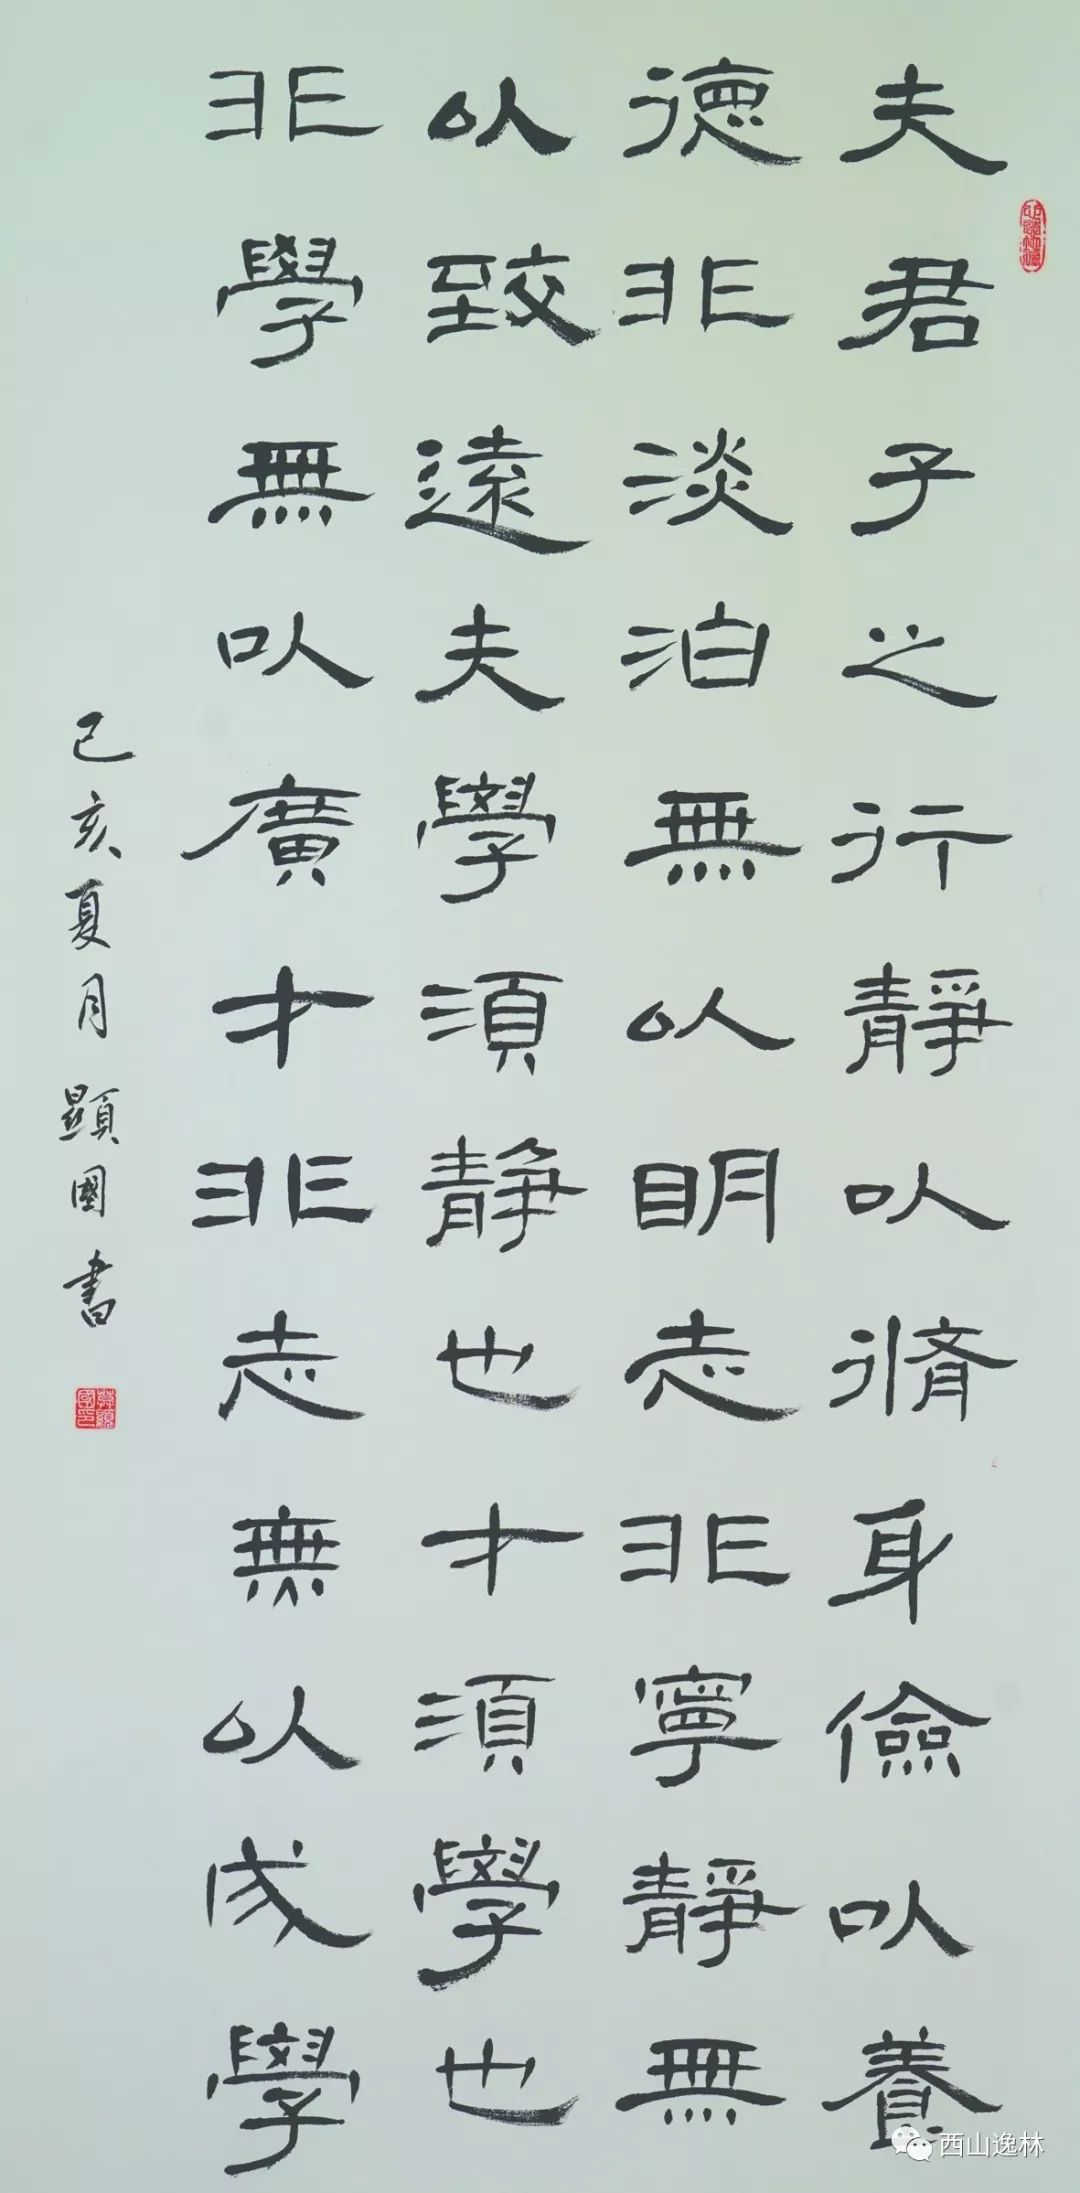 夫君子之行靜以脩身儉以養
德非淡泊無以明志非寧靜無
以致遠夫學須静也才須學也
非學無以廣才非志無以成學
己亥夏月顯國書
西山逸林